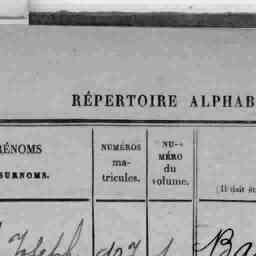 RÉPERTOIRE ALPHAB
RÉNOMS
SURNOMS.
NUMÉROS
ma-
tricules.
NU-
MÉRO
du
volume.
(Il doit êt
Joseph 1 Ba